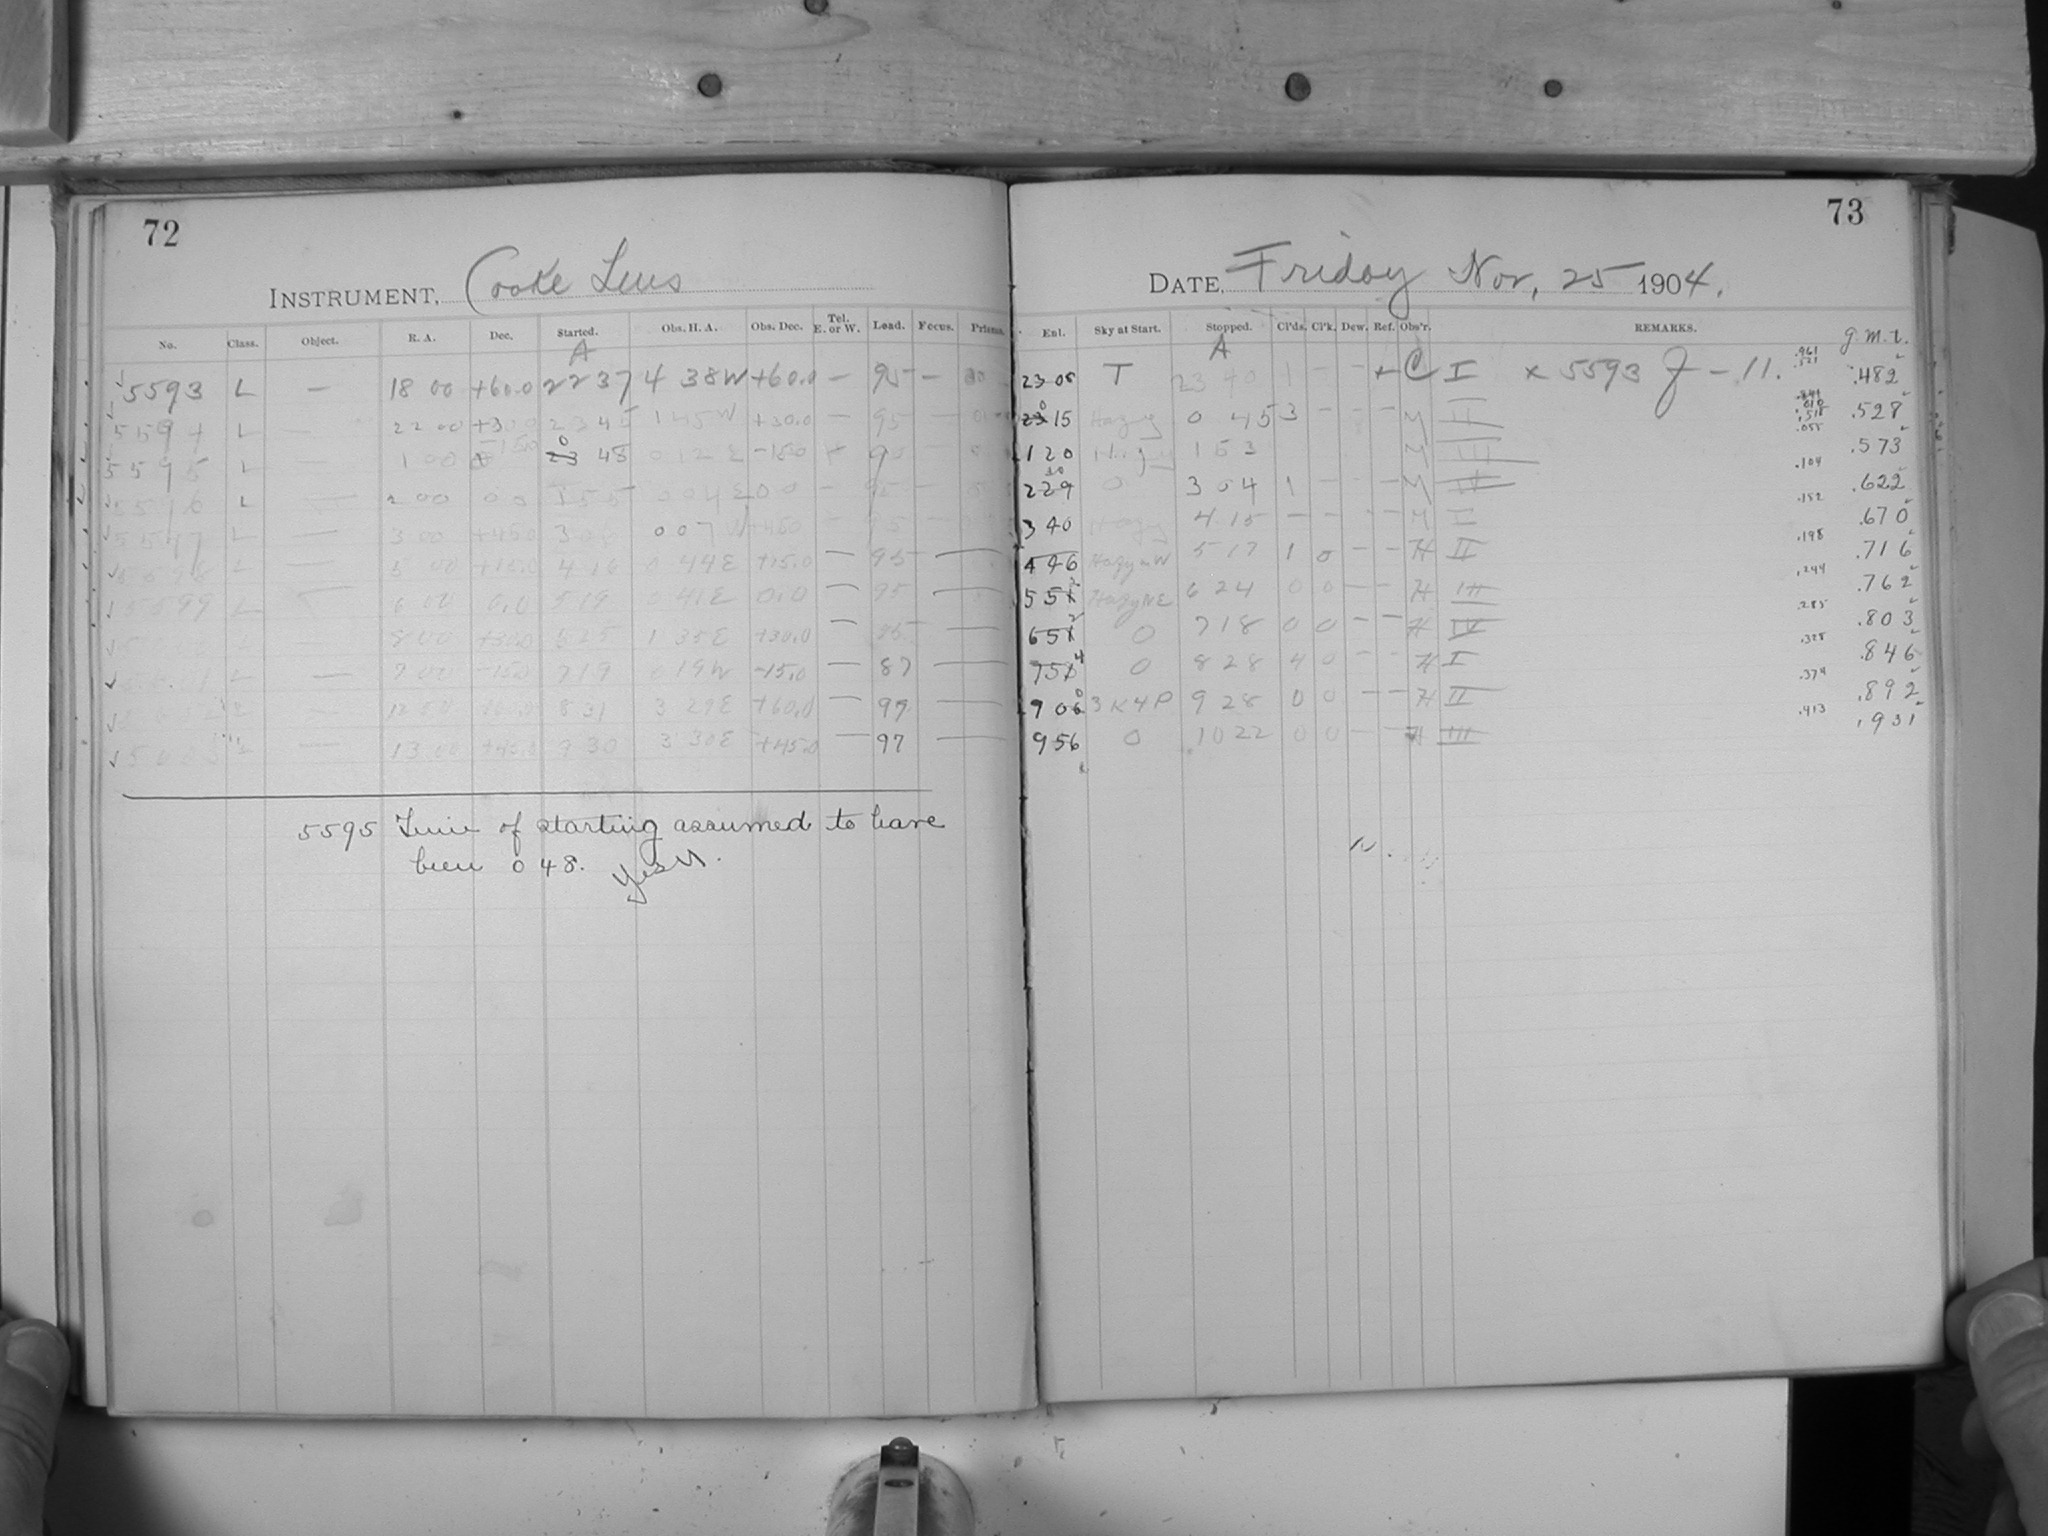 72
INSTRUMENT, Cooke Lens
No. Class. Object. R. A. Dec. Started. Obs. H. A. Obs. Dec. Tel. E. or W. Load. Focus. Prisms.
A
5593 L — 18 00 +60.0 22 37 4 38W +60.0 — 95 —
5594 L — 22 00 +30.0 23 45 1 45W +30.0 — 95
5595 L 1 00 -15.0 0 23 48 0 12 E -15.0
5596 L — 2 00 0.0 1 55 0 04E 0.0 — 95
5597 L — 3 00 +45.0 3 06 0 07W +45.0 — 95
5598 L — 5 00 +15.0 4 16 0 44E +15.0 — 95 —
5599 L 6 00 0.0 5 19 0 41E 0.0 — 95 —
8 00 +30.0 6 25 1 35E +30.0 — 95 —
L — 7 00 -15.0 7 19 0 19W -15.0 — 87 —
L — 12 00 +60.0 8 31 3 29E +60.0 — 97 —
L — 13 00 +45.0 9 30 3 30E +45.0 — 97 —
5595 Time of starting assumed to have
been 0 48. Yes M.
73
DATE, Friday Nov, 25 1904.
Enl. Sky at Start. Stopped. Cl'ds. Cl'k. Dew. Ref. Obs'r. REMARKS. g.m.t.
A
23 08 T 23 40 1 - - + C I x 5593 J - 11. .482
23 0 15 Hazy 0 45 3 - - - M II .528
1 20 Hazy 1 53 M III .573
2 29 30 0 3 04 1 - - - M IV .104 .622
3 40 Hazy 4 15 - - - - M I .152 .670
4 46 Hazy in W 5 17 1 0 - - H II .198 .716
5 51 2 Hazy NE 6 24 0 0 - - H III .244 .762
6 51 2 0 7 18 0 0 - - H IV .285 .803
7 51 4 0 8 28 4 0 - - H I .328 .846
9 06 0 3K4P 9 28 0 0 - - H II .374 .892
9 56 0 10 22 0 0 - - H III .413 .931